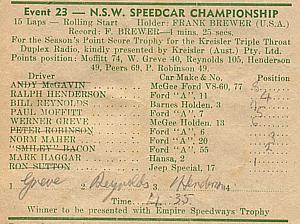 Event 23 — N.S.W. SPEEDCAR CHAMPIONSHIP
15 Laps - Rolling Start Holder: FRANK BREWER (U.S.A.)
Record: F. BREWER—4 mins. 25 secs.
For the Season's Point Score Trophy for the Kreisler Triple Throat
Duplex Radio, kindly presented by Kreisler (Aust.) Pty. Ltd.
Points: Moffitt 74, W. Greve 40, Reynolds 105, Henderson
49, Peers 69, P. Robinson 49.
Driver Car Make & No. Position
ANDY McGAVIN McGee Ford V8-60, 77
RALPH HENDERSON Ford "A", 11
BILL REYNOLDS Barnes Holden, 3
PAUL MOFFITT Ford "A", 7
WERNER GREVE McGee Holden, 13
PETER ROBINSON Ford "A", 6
NORM MAHER Ford "A", 20
"SMILEY" BACON Ford "A", 55
MARK HAGGAR Hansa, 2
RON SUTTON Jeep Special, 17
1 Greve 2 Reynolds 3 Henderson 4
Time 4. 35
Winner to be presented with Empire Speedways Trophy